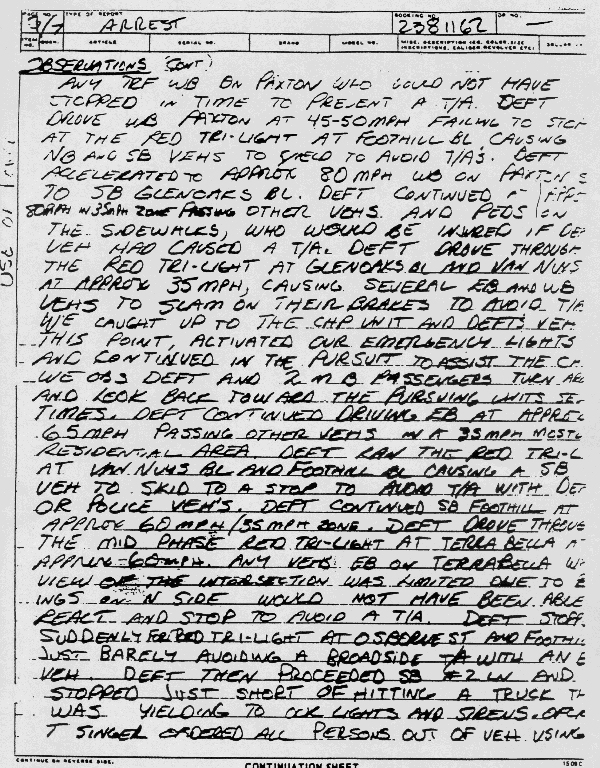 PAGE NO. TYPE OF REPORT BOOKING NO. DR NO.
3/7 ARREST 2381162 —
ITEM NO. QUAN. ARTICLE SERIAL NO. BRAND MODEL NO. MISC. DESCRIPTION (EG. COLOR, SIZE INSCRIPTIONS, CALIBER REVOLVER ETC) DOLLAR
OBSERVATIONS (CONT)
ANY TRF WB ON PAXTON WHO WOULD NOT HAVE
STOPPED IN TIME TO PREVENT A T/A. DEFT
DROVE WB PAXTON AT 45-50MPH FAILING TO STOP
AT THE RED TRI-LIGHT AT FOOTHILL BL, CAUSING
NB AND SB VEHS TO YIELD TO AVOID T/A'S. DEFT
ACELERATED TO APPROX 80 MPH WB ON PAXTON
TO SB GLENOAKS BL. DEFT CONTINUED AT
80MPH IN 35MPH ZONE PASSING OTHER VEHS. AND PEDS ON
THE SIDEWALKS, WHO WOULD BE INJURED IF DEF
VEH HAD CAUSED A T/A. DEFT DROVE THROUGH
THE RED TRI-LIGHT AT GLENOAKS BL AND VAN NUYS
AT APPROX 35MPH, CAUSING SEVERAL EB AND WB
VEHS TO SLAM ON THEIR BRAKES TO AVOID T/A
WE CAUGHT UP TO THE CHP UNIT AND DEFTS VEH
THIS POINT, ACTIVATED OUR EMERGENCY LIGHTS
AND CONTINUED IN THE PURSUIT TO ASSIST THE CH
WE OBS DEFT AND 2 M B PASSENGERS TURN
AND LOOK BACK TOWARD THE PURSUING UNITS SE
TIMES. DEFT CONTINUED DRIVING EB AT APPROX
65MPH PASSING OTHER VEHS IN A 35MPH MOSTL
RESIDENTIAL AREA. DEFT RAN THE RED TRI-L
AT VAN NUYS BL AND FOOTHILL BL CAUSING A SB
VEH TO SKID TO A STOP TO AVOID T/A WITH DEF
OR POLICE VEH'S. DEFT CONTINUED SB FOOTHILL AT
APPROX 60MPH/35MPH ZONE. DEFT DROVE THROUG
THE MID PHASE RED TRI-LIGHT AT TERRA BELLA AT
APPROX 60MPH. ANY VEHS EB ON TERRABELLA
VIEW OF THE INTERSECTION WAS LIMITED DUE TO
INGS ON N SIDE WOULD NOT HAVE BEEN ABLE
REACT AND STOP TO AVOID A T/A. DEFT STOPP
SUDDENLY FOR RED TRI-LIGHT AT OSBORNE ST AND FOOTHIL
JUST BARELY AVOIDING A BROADSIDE T/A WITH AN E
VEH. DEFT THEN PROCEEDED SB #2 LN AND
STOPPED JUST SHORT OF HITTING A TRUCK TH
WAS YIELDING TO OUR LIGHTS AND SIRENS. OFCR
T SINGER ORDERED ALL PERSONS OUT OF VEH USING
CONTINUE ON REVERSE SIDE. CONTINUATION SHEET